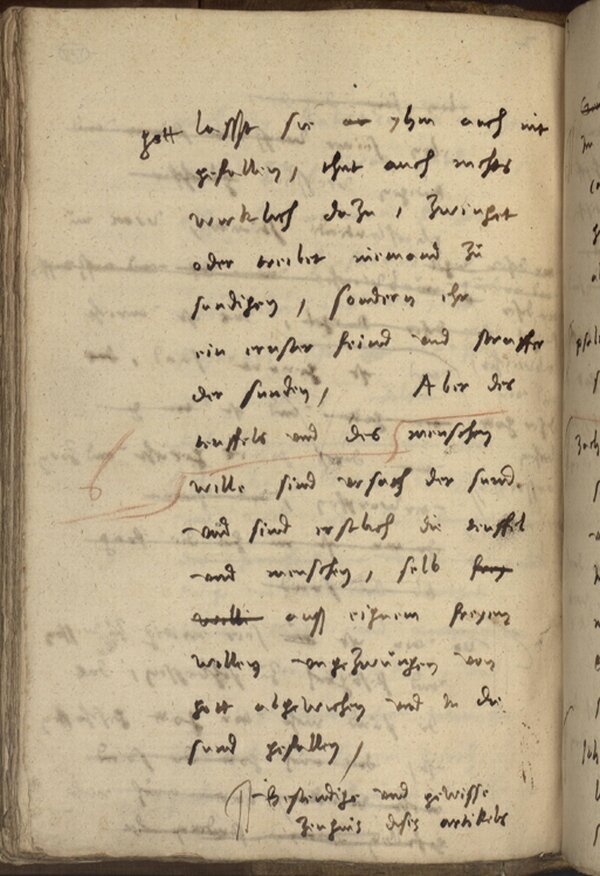 gott lesst sie an yhm auch nit
gefallen, thut auch nichts
wurklich dazu, zwinget
oder treibet niemand zu
sundigen, sondern ist
ein ernster feind und straffer
der sunden, Aber des
teuffels und des menschen
wille sind ursach der sund.
und sind erstlich die teuffel
und menschen, selb frey
willi auß eignem freyen
willen ungezwungen von
gott abgewichen und in die
sund gefallen,
Bestendige und gewisse
zeugnis dises artikels